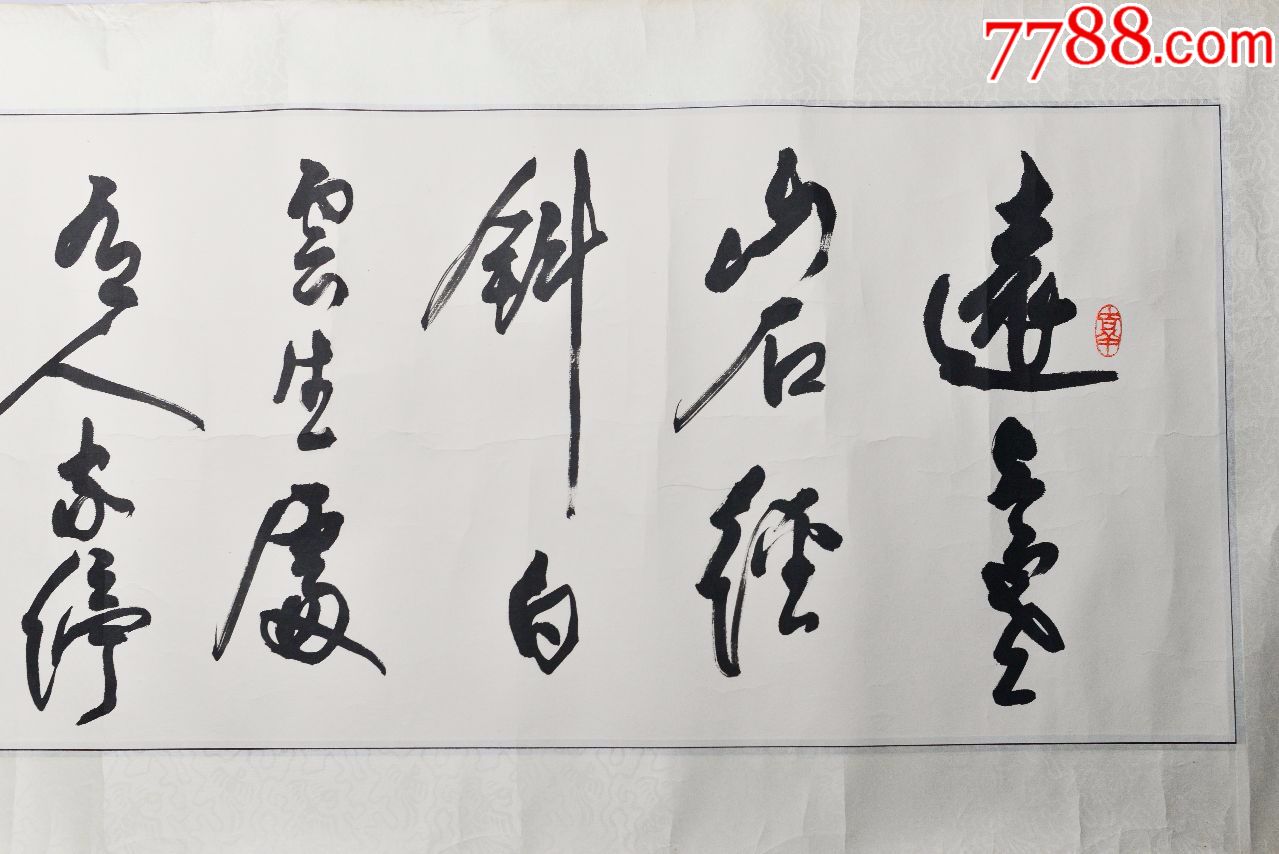 遠上寒
山石徑
斜白
雲生處
有人家停
7788.com